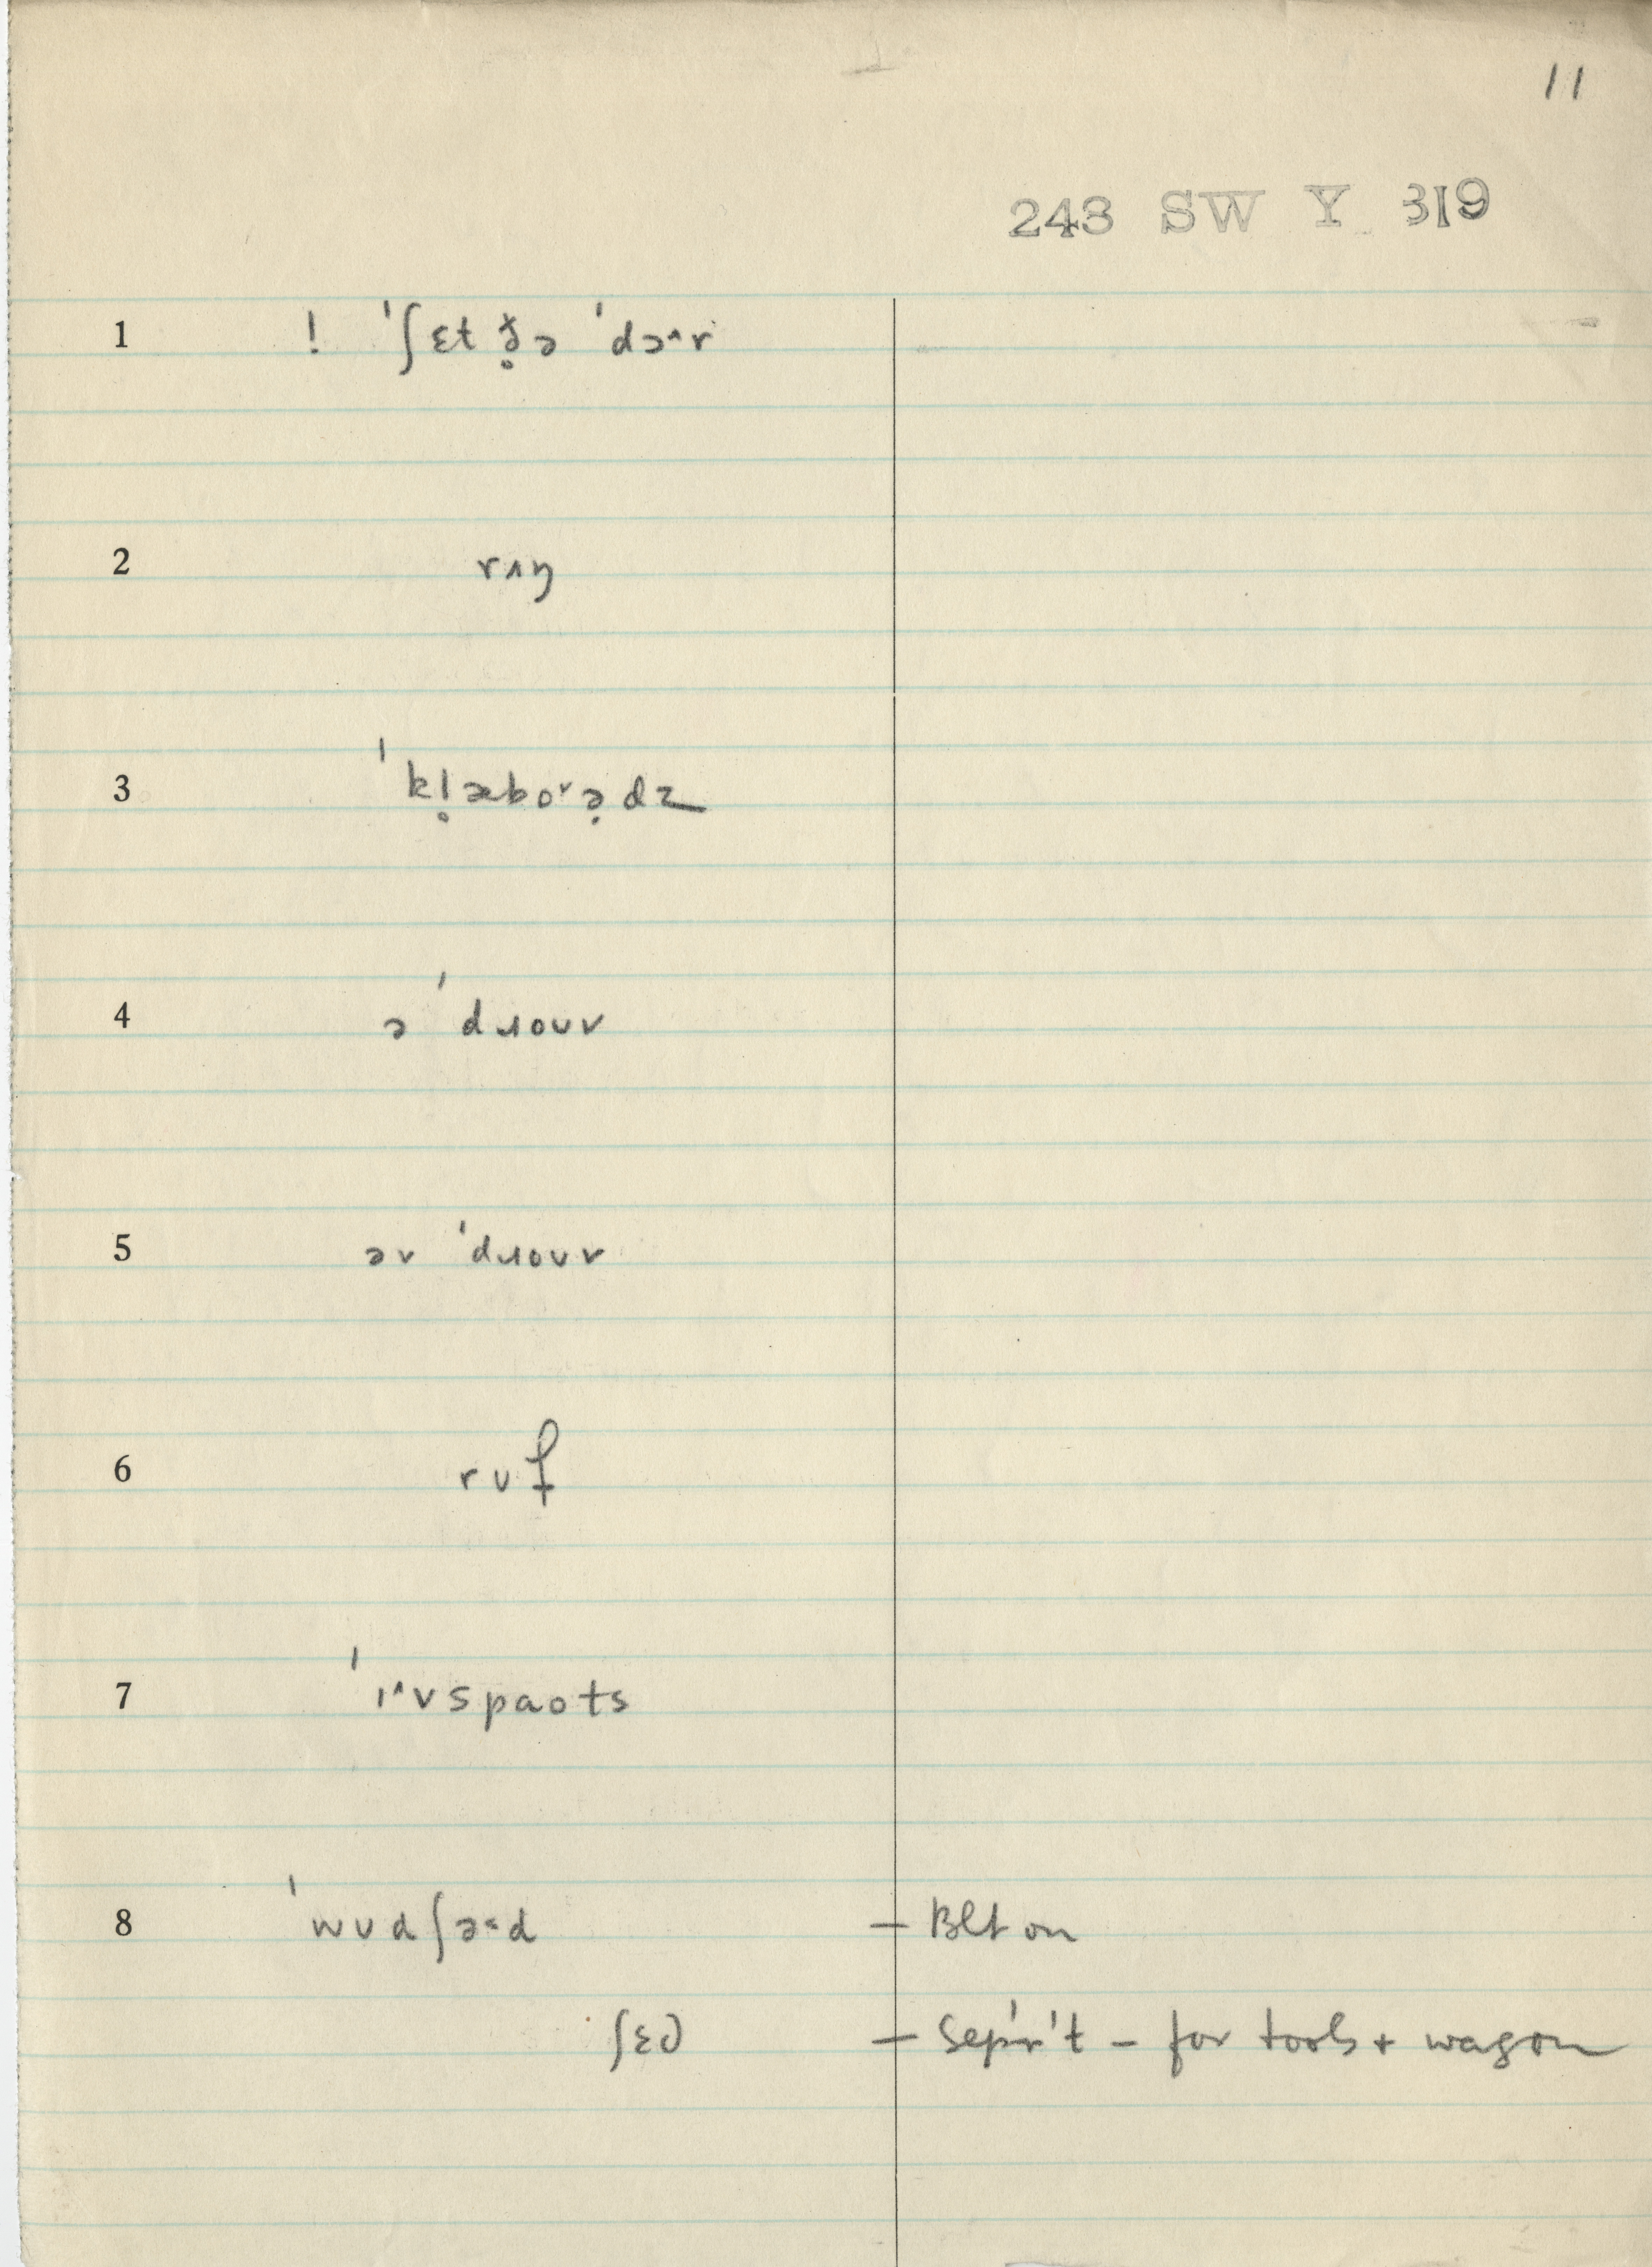 11
243 SW Y 319
1 ! ˈʃɛt ð̥ə ˈdɔ˄r
2 rʌŋ
3 ˈkl̥æboɚ̣dz
4 ə ˈdɹoʊv
5 əv ˈdɹoʊv
6 rʊf
7 ˈɪ˄vspaots
8 ˈwʊdʃɜ˂d — Blt on
ʃɛd — Sep'r't - for tools + wagon